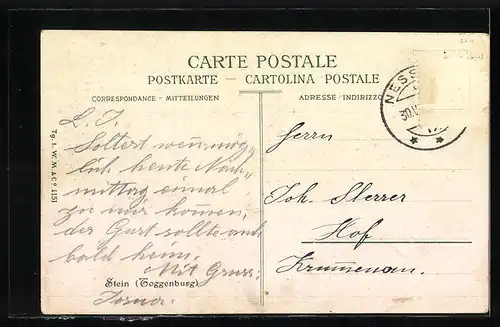 CARTE POSTALE
POSTKARTE – CARTOLINA POSTALE
CORRESPONDANCE - MITTEILUNGEN
ADRESSE / INDIRIZZO
NESS
30.
VII
L. J.
Soltest wenn mög„
lich heute Nach„
mittag einmal
zu mir kommen,
der Gurt sollte auch
bald heim.
Mit Gruss:
Stein (Toggenburg)
Herrn
Joh.
Hof
Krummenau.
Tg. I. W. M. & Co 1151